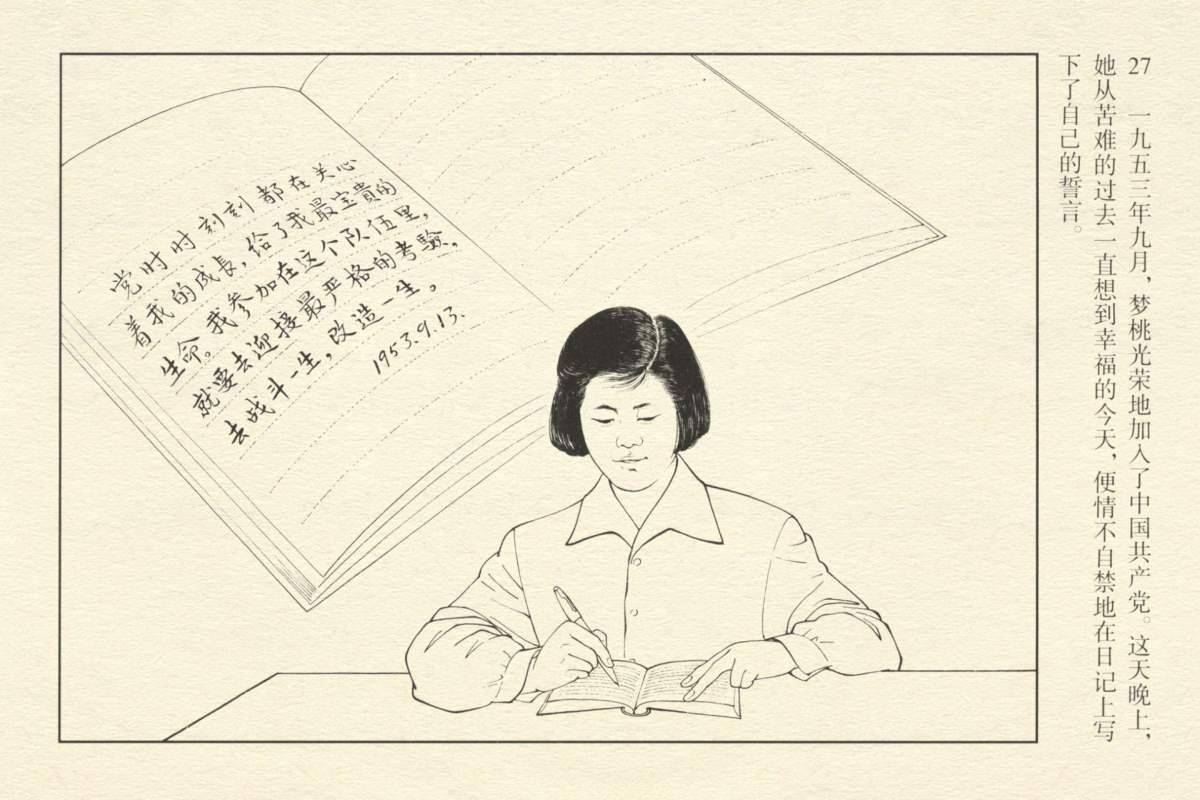 27 一九五三年九月，梦桃光荣地加入了中国共产党。这天晚上，
她从苦难的过去一直想到幸福的今天，便情不自禁地在日记上写
下了自己的誓言。
党时时刻刻都在关心
着我的成長，给了我最宝贵的
生命。我参加在这个队伍里，
就要去迎接最严格的考驗，
去战斗一生，改造一生。
1953.9.13.